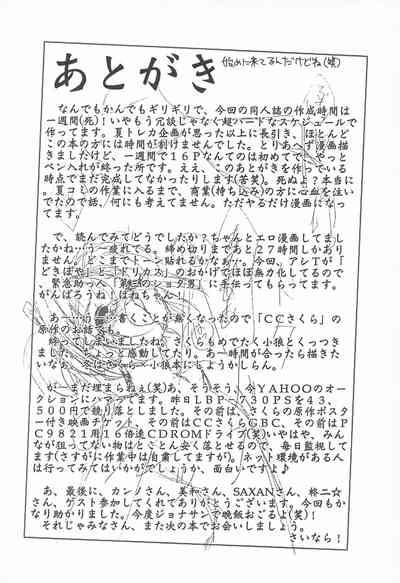 あとがき
始めに来てるんだけどね(笑)
なんでもかんでもギリギリで、今回の同人誌の作成時間は
一週間(死)!いやもう冗談じゃなく超ハードなスケジュールで
作ってます。夏トレカ企画が思った以上に長引き、ほとんど
この本の方には時間が割けませんでした。とりあへず漫画描
きましたけど、一週間で16Pなんてのは初めてで、やっと
ペン入れが終った所です。ええ、このあとがきを作っている
時点でまだ完成してなかったりします(苦笑)。死ぬよ?本当に
。夏コミの作業に入るまで、商業(持ち込み)の方に心血を注い
でたので話、何にも考えてません。ただヤるだけ漫画になっ
てます。
で、読んでみてどうでしたか?ちゃんとエロ漫画してまし
たかね…う~疲れてる。締め切りまであと27時間しかあり
ません。どこまでトーン貼れるかなぁ…。今回、アシTが「
どきばや」と「ドリカス」のおかげでほぼ無力化してるので
、緊急助っ人「第三のショタ男」に手伝ってもらってます。
がんばろうね!はねちゃん!
あー…書くことが無くなったので「CCさくら」の
原作のお話でも。
終ってしまいましたね。さくらもめでたく小狼とくっつき
ました。ちょっと感動してたり。あー時間が合ったら描きた
いなぁ。冬はさくら×小狼本にしようかしらん。
がーまだ埋まらねぇ(笑)あ、そうそう、今YAHOOのオー
クションにハマってます。昨日LBP-730PSを43,
500円で競り落としました。その前は、さくらの原作ポスター
付き映画チケット、その前はCCさくらGBC、その前はP
C9821用16倍速CDROMドライブ(笑)いやはや、みん
なが狙ってない物はとことん安く落とせるので、毎日監視して
ます(さすがに作業中は自粛してますが)。ネット環境がある人
は行ってみてはいかがでしょうか、面白いですよ♪
あ、最後に、カンノさん、美和さん、SAXANさん、柊二☆
さん、ゲスト参加してくれてありがとうございます。今回もか
なり助かりました。今度ジョナサンで晩飯おごるよ(笑)!
それじゃみなさん、また次の本でお会いしましょう。
さいなら!